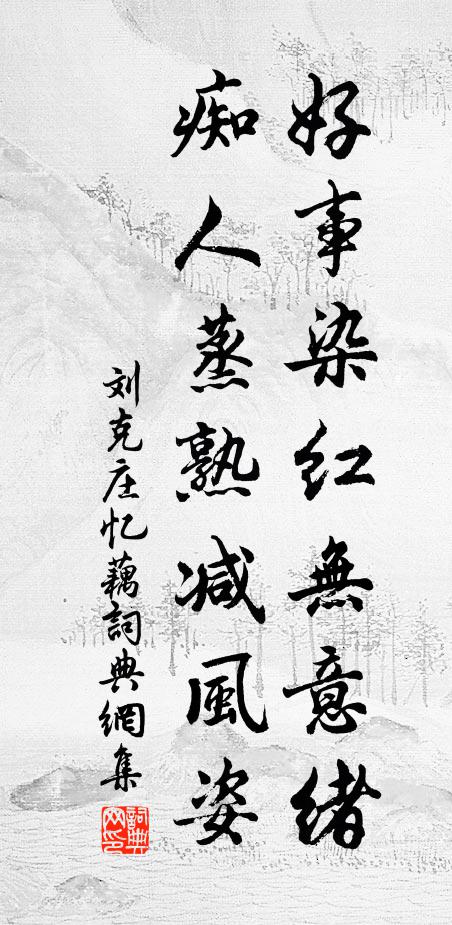 好事染红無意緒
痴人蒸熟减風姿
刘克庄忆藕詞典網集
詞典
网印